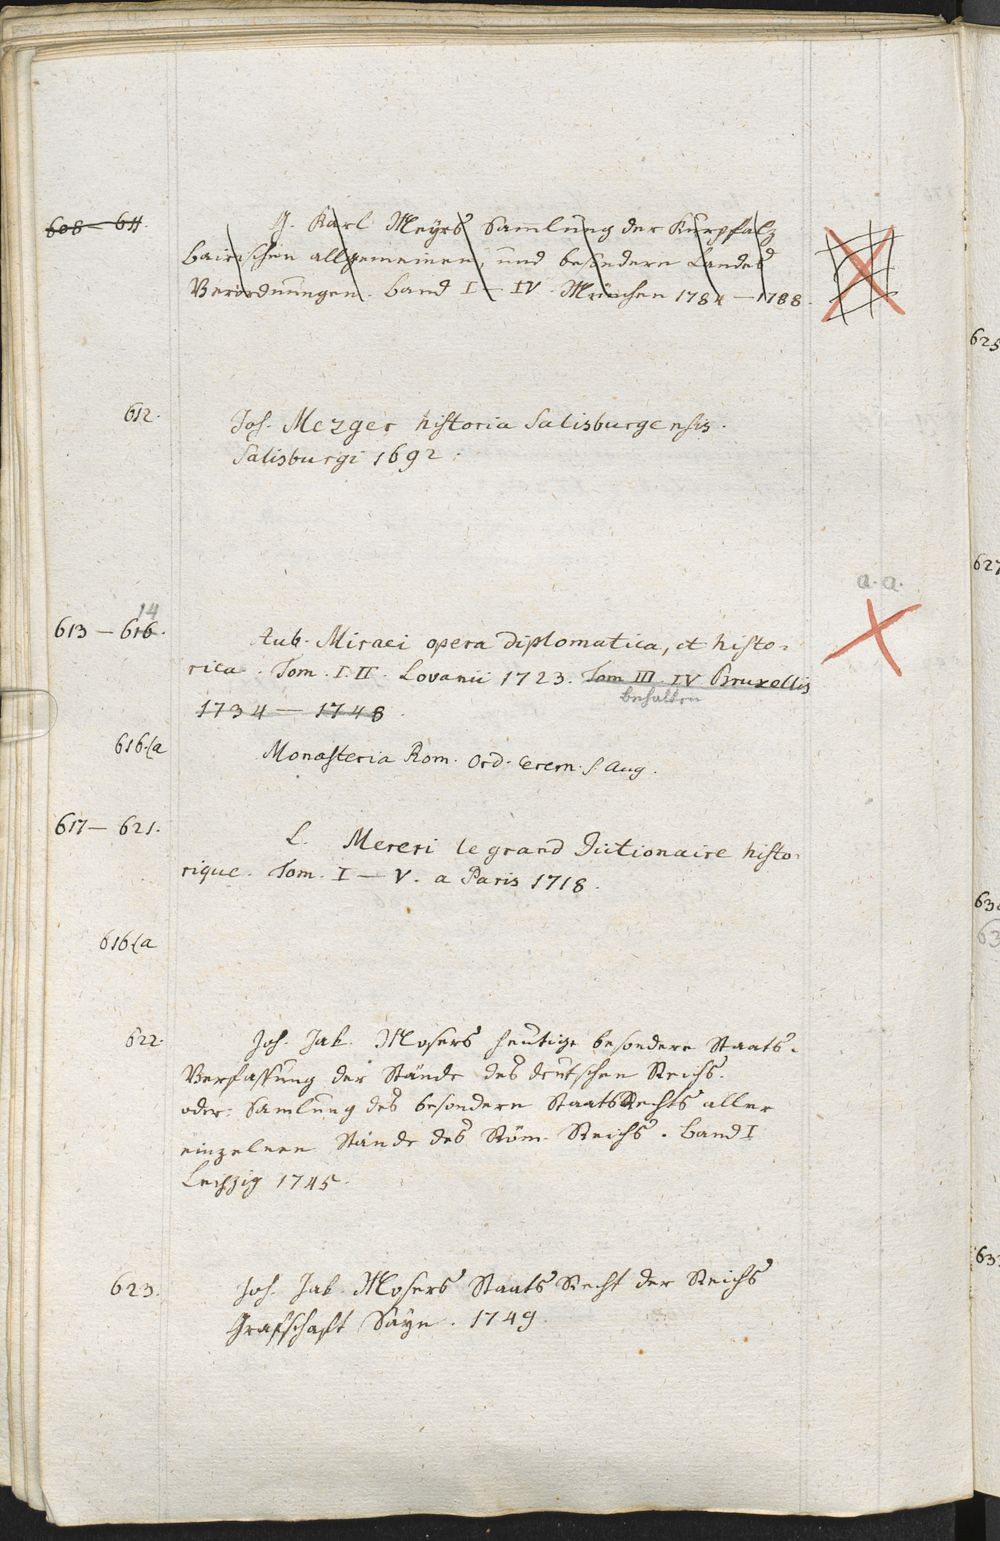 608 – 611.
G. Karl Meyrs Samlung der Kurpfalz
Bairischen allgemeinen, und besondern Landes
Verordnungen. Band I – IV. München 1784 – 1788.
612.
Jos. Mezger historia Salisburgensis.
Salisburgi 1692.
a. a.
14
613 – 616.
Aub. Miraei opera diplomatica, et histo-
rica. Tom. I. II. Lovanii 1723. Tom III. IV Bruxellis
behalten
1734 – 1748.
616(a
Monasteria Rom. Ord. Erem. S. Aug.
617 – 621.
L. Moreri le grand Dictionaire histo-
rique. Tom. I – V. a Paris 1718.
616(a
622.
Joh. Jak. Mosers heutige besondere Staats-
Verfassung der Stände des deutschen Reichs.
oder: Samlung des besondern Staats Rechts aller
einzelnen Stände des Röm. Reichs. Band I
Leipzig 1745.
623.
Joh. Jak. Mosers Staats Recht der Reichs
Grafschaft Sayn. 1749.
625
627
63
633